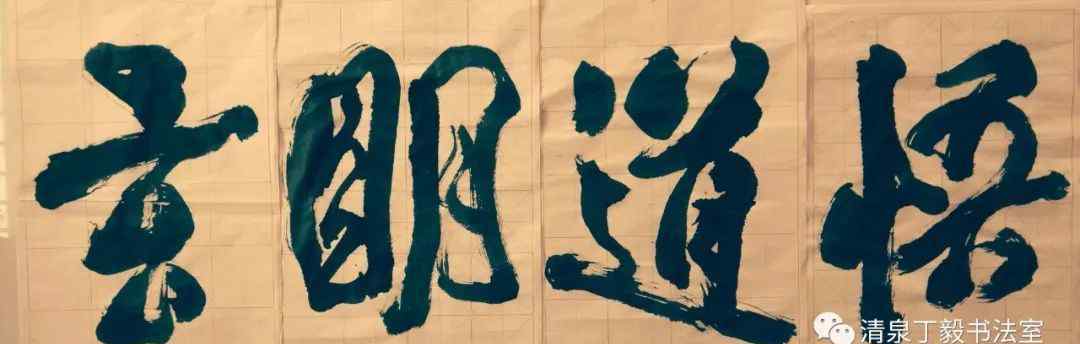 悟道明玄
清泉丁毅书法室